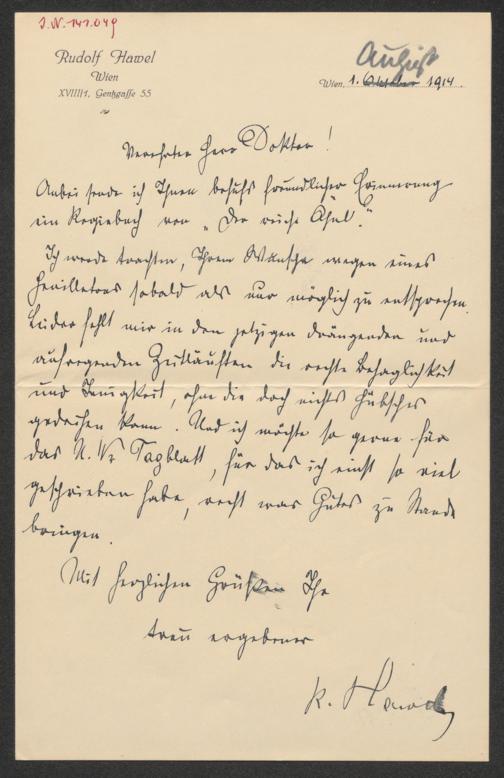 I.N. 141.049
Rudolf Hawel
Wien
XVIII/1, Gentzgasse 55
August
Wien, 1. Oktober 1914.
Verehrter Herr Doktor!
Anbei sende ich Ihnen behufs freundlicher Erinnerung
ein Regiebuch von „Der reiche Ähnl."
Ich werde trachten, Ihrem Wunsche wegen eines
Feuilletons sobald als nur möglich zu entsprechen.
Leider fehlt mir in den jetzigen drängenden und
aufregenden Zeitläuften die rechte Behaglichkeit
und Innigkeit, ohne die doch nichts Hübsches
gedeihen kann. Und ich möchte so gerne für
das N. Wr Tagblatt, für das ich einst so viel
geschrieben habe, recht was Gutes zu Stande
bringen.
Mit herzlichen Grüßen Ihr
treu ergebener
R. Hawel